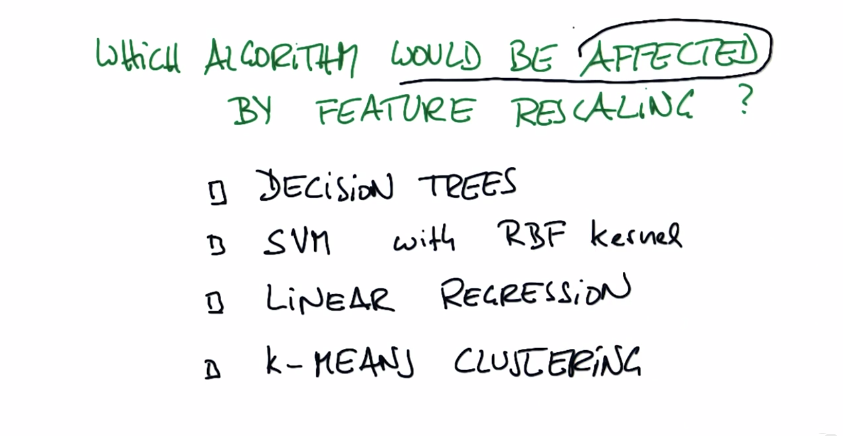 WHICH ALGORITHM WOULD BE AFFECTED
BY FEATURE RESCALING ?
DECISION TREES
SVM with RBF kernel
LINEAR REGRESSION
K-MEANS CLUSTERING